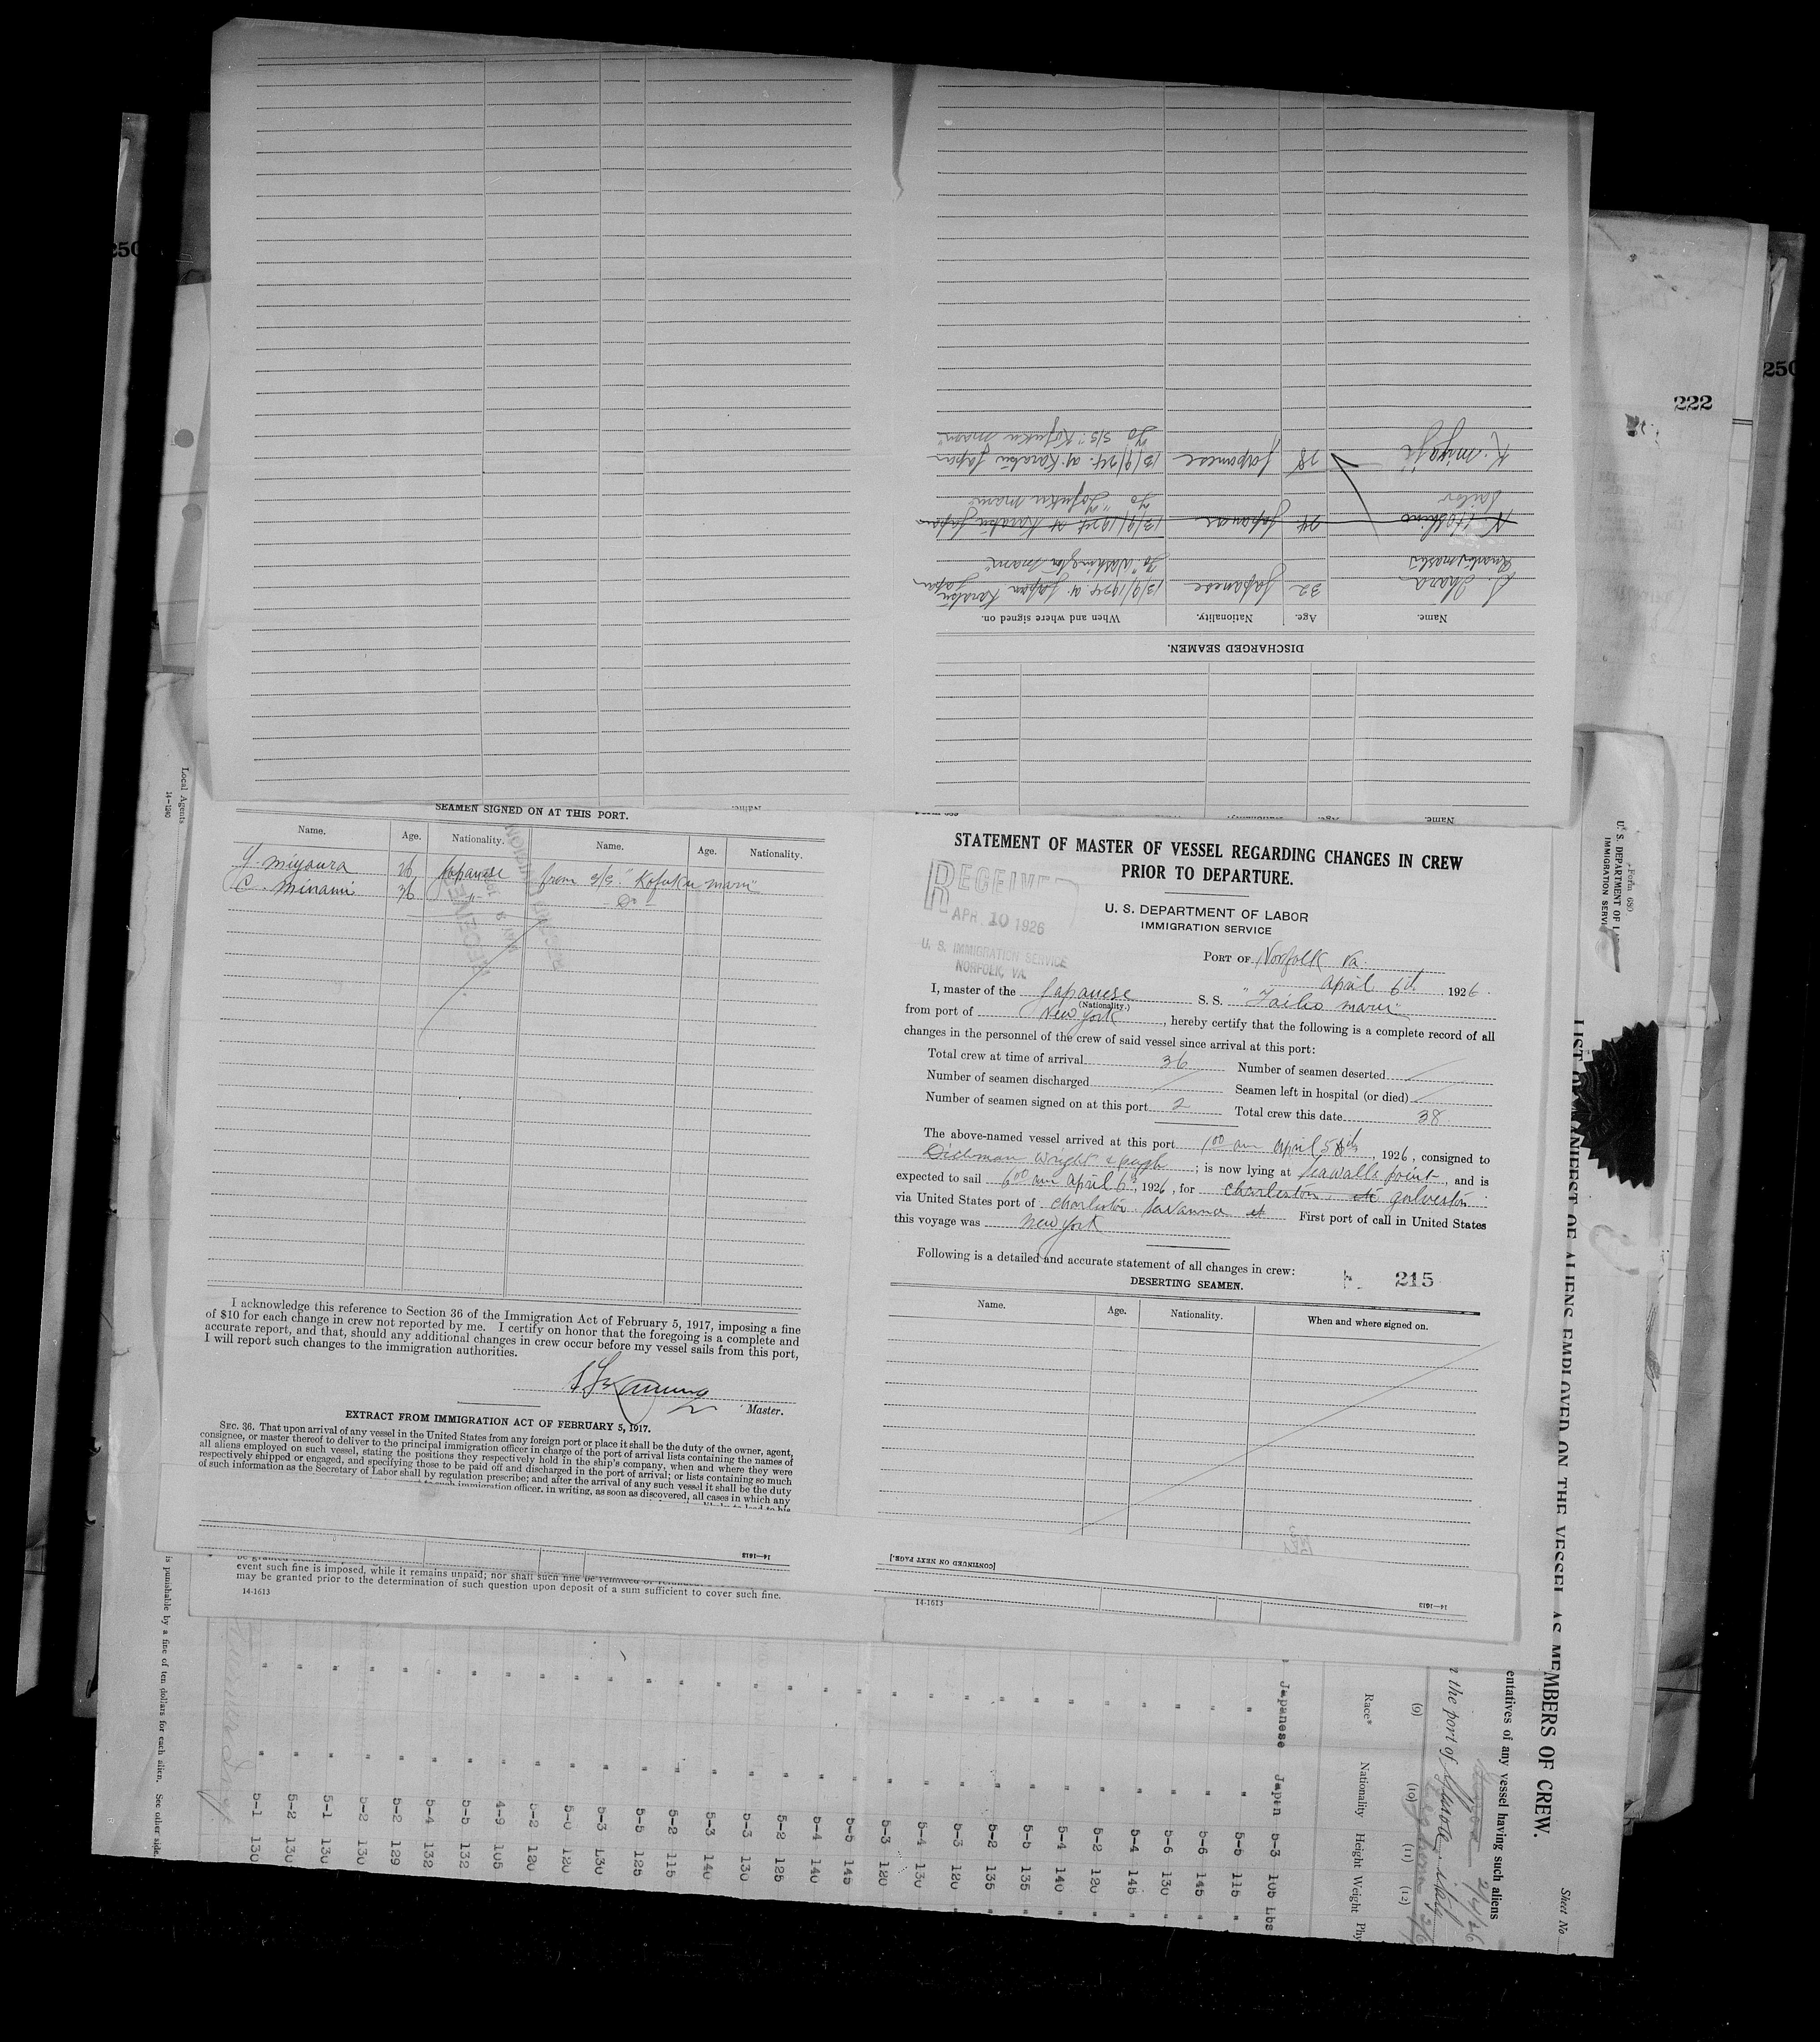 250
250
222
K. Miyaji
28
Japanese
13/9/24. at. Karatsu Japan
To S/S. "Kofuku maru"
N. Hoshino
Sailor
24
Japanese
13/9/1924 at Karatsu Japan
S. Ihara
Quartermaster
32
Japanese
13/9/1924. at. Japan Karatsu
Japan
To "Washington maru"
Name.
Age.
Nationality.
When and where signed on.
DISCHARGED SEAMEN.
Local Agents
14-1240
SEAMEN SIGNED ON AT THIS PORT.
Name. Age. Nationality. Name. Age. Nationality.
Y. Miyaura 26 Japanese from S/S. "Kofuku maru"
C. Minami 36 -"- -Do-
I acknowledge this reference to Section 36 of the Immigration Act of February 5, 1917, imposing a fine
of $10 for each change in crew not reported by me. I certify on honor that the foregoing is a complete and
accurate report, and that, should any additional changes in crew occur before my vessel sails from this port,
I will report such changes to the immigration authorities.
Master.
EXTRACT FROM IMMIGRATION ACT OF FEBRUARY 5, 1917.
SEC. 36. That upon arrival of any vessel in the United States from any foreign port or place it shall be the duty of the owner, agent,
consignee, or master thereof to deliver to the principal immigration officer in charge of the port of arrival lists containing the names of
all aliens employed on such vessel, stating the positions they respectively hold in the ship's company, when and where they were
respectively shipped or engaged, and specifying those to be paid off and discharged in the port of arrival; or lists containing so much
of such information as the Secretary of Labor shall by regulation prescribe; and after the arrival of any such vessel it shall be the duty
such immigration officer, in writing, as soon as discovered, all cases in which any
14-1613
event such fine is imposed, while it remains unpaid; nor shall such fine be remitted or refunded
may be granted prior to the determination of such question upon deposit of a sum sufficient to cover such fine.
14-1613
STATEMENT OF MASTER OF VESSEL REGARDING CHANGES IN CREW
PRIOR TO DEPARTURE.
RECEIVED
APR. 10 1926
U. S. IMMIGRATION SERVICE
NORFOLK, VA.
U. S. DEPARTMENT OF LABOR
IMMIGRATION SERVICE
PORT OF Norfolk Va.
April 6th, 1926.
I, master of the Japanese S. S. "Taiho maru"
(Nationality.)
from port of New York, hereby certify that the following is a complete record of all
changes in the personnel of the crew of said vessel since arrival at this port:
Total crew at time of arrival 36 Number of seamen deserted
Number of seamen discharged Seamen left in hospital (or died)
Number of seamen signed on at this port 2 Total crew this date 38
The above-named vessel arrived at this port 1 00 am April 5th, 1926, consigned to
Dichman Wright & Pugh; is now lying at Seawalls point, and is
expected to sail 6 00 am April 6th, 1926, for Charleston galveston
via United States port of Charleston Savanna First port of call in United States
this voyage was New York
Following is a detailed and accurate statement of all changes in crew:
DESERTING SEAMEN.
215
Name. Age. Nationality. When and where signed on.
[CONTINUED ON NEXT PAGE.]
14-1613
14-1613
Form 680
U. S. DEPARTMENT OF LA
IMMIGRATION SERVI
LIST OR MANIFEST OF ALIENS EMPLOYED ON THE VESSEL AS MEMBERS OF CREW.
Sheet No
entatives of any vessel having such aliens
the port of
(9) (10) (11) (12)
Race* Nationality Height Weight Phy
Japanese Japan 5-3 105 Lbs
" " 5-5 115 "
" " 5-6 145 "
" " 5-6 130 "
" " 5-4 145 "
" " 5-2 120 "
" " 5-4 140 "
" " 5-5 135 "
" " 5-2 135 "
" " 5-3 120 "
" " 5-4 130 "
" " 5-3 120 "
" " 5-5 145
" " 5-4 140
" " 5-2 125
" " 5-3 130
" " 5-3 140
" " 5-2 115
" " 5-5 125
" " 5-3 130
" " 5-0 120
" " 5-2 120
" " 4-9 105
" " 5-5 132
" " 5-4 132
" " 5-2 129
" " 5-2 130
" " 5-1 130
" " 5-2 130
" " 5-1 130
is punishable by a fine of ten dollars for each alien. See other side.